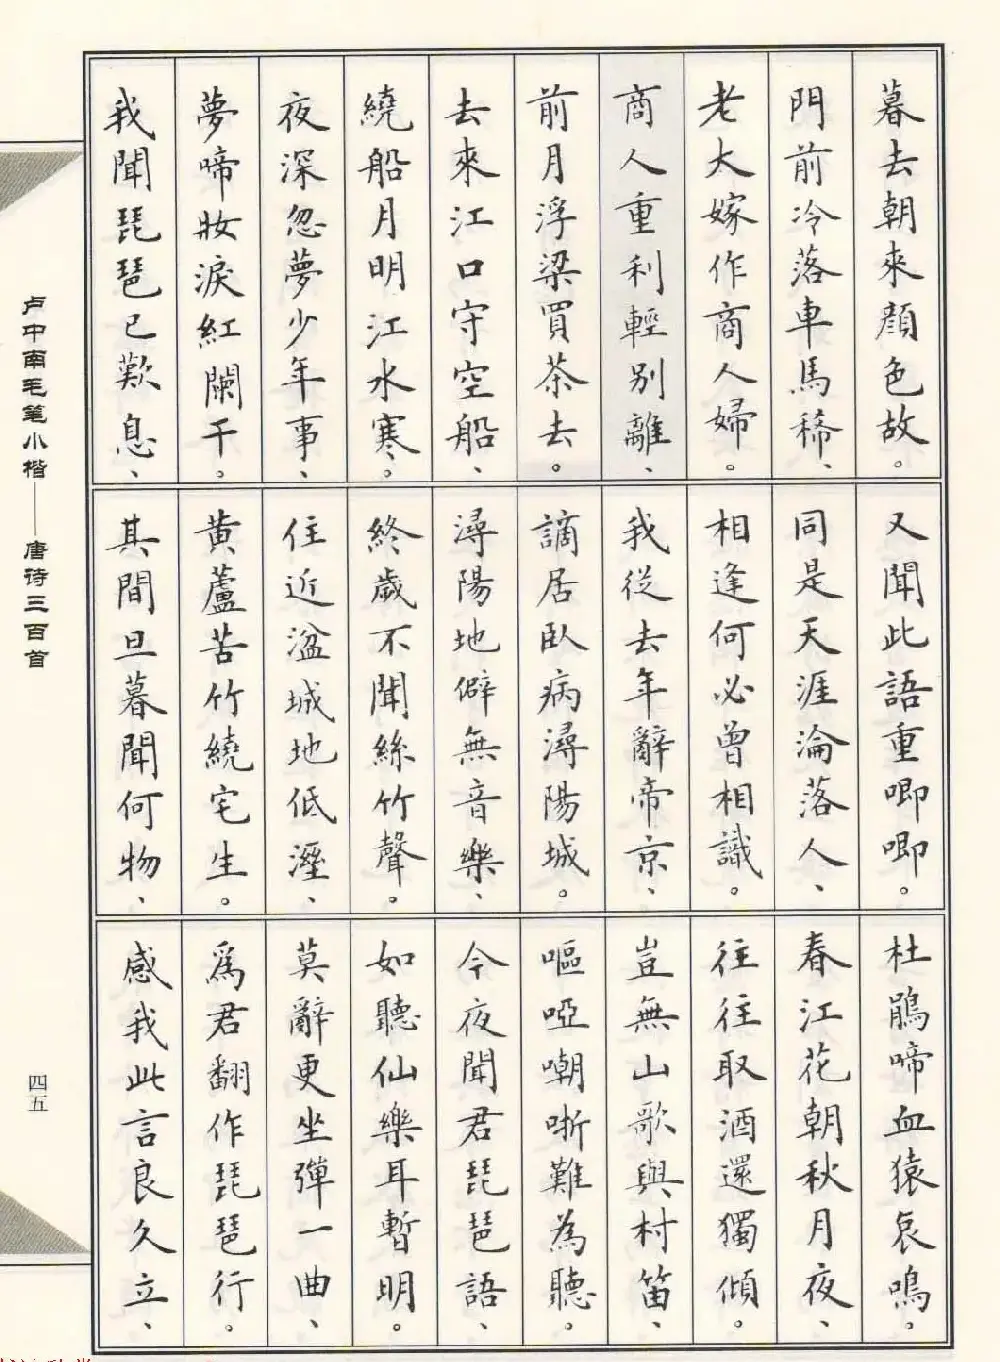 暮去朝來顔色故。
門前冷落車馬稀、
老大嫁作商人婦。
商人重利輕別離、
前月浮梁買茶去。
去來江口守空船、
繞船月明江水寒。
夜深忽夢少年事、
夢啼妝淚紅闌干。
我聞琵琶已歎息、
又聞此語重唧唧。
同是天涯淪落人、
相逢何必曾相識。
我從去年辭帝京、
謫居臥病潯陽城。
潯陽地僻無音樂、
終歲不聞絲竹聲。
住近湓城地低溼、
黄蘆苦竹繞宅生。
其間旦暮聞何物、
杜鵑啼血猿哀鳴。
春江花朝秋月夜、
往往取酒還獨傾。
豈無山歌與村笛、
嘔啞嘲哳難為聽。
今夜聞君琵琶語、
如聽仙樂耳暫明。
莫辭更坐彈一曲、
爲君翻作琵琶行。
感我此言良久立、
卢中南毛笔小楷——唐诗三百首
四五